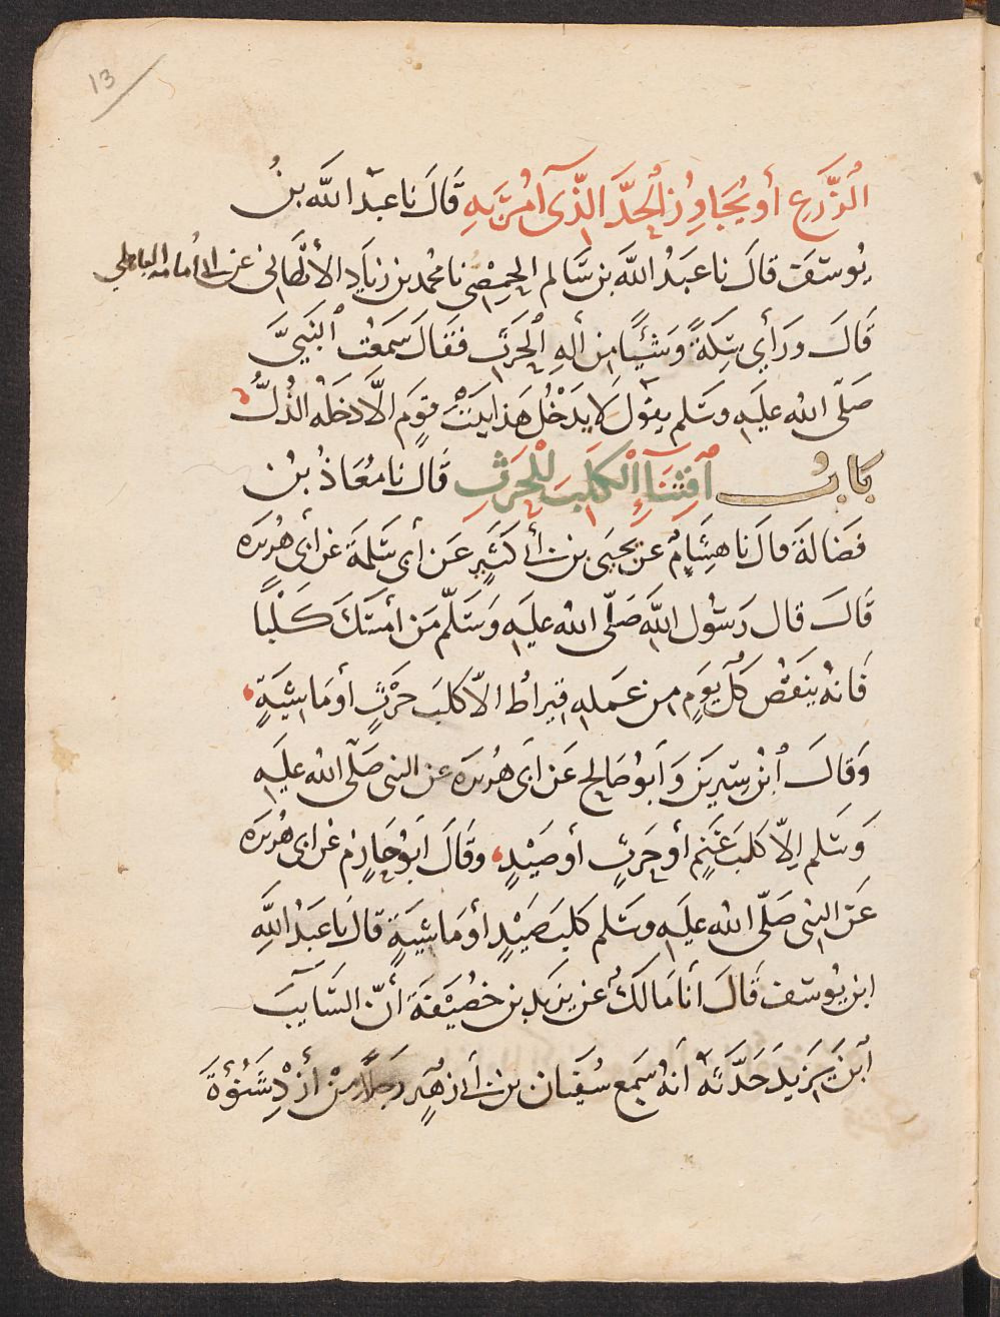 13
الزَّرْعِ أَو يُجَاوِزُ الْحَدَّ الَّذِي أُمِرَ بِهِ قَالَ نا عبد الله بنُ
يُوسُفَ قالَ نا عَبْدُ اللَّه بن سَالم الحِمْصِيُّ نا مُحمد بن زيَادٍ الأَلْهَانى عن ابى أمامه الباهلي
قَالَ ورَأَي سِكَّةً وَشَيْـًٔا مِن أَلةِ الْحَرْثِ فَقالَ سَمِعْتُ النَّبِيَّ
صَلّى الله عليه وسَلم يقولُ لَا يدخُل هَذا بَيْتَ قومٍ الَّا دَخَلَه الذُّلُّ
بَابُ اقْتِنَآءِ الْكَلبِ لِلْحَرْثِ قَالَ نا مُعَاذُ بنُ
فَضَالَةَ قالَ نا هِشَامٌ عن يَحيَى بن أَبي كَثِيرٍ عَن أَبى سَلمَةَ عَن أبى هُريرَه
قَالَ قال رَسُول اللَّهِ صَلّى الله عليه وَسَلّم مَن أَمسَكَ كَلْبًا
فَانهُ يَنقُصُ كُلَّ يَومٍ من عَملهِ قيراطٌ الاّ كلبَ حَرْثٍ أو مَاشِيَةٍ
وَقالَ ابْنُ سِيرينَ وَأَبوُ صَالحٍ عَن ابَى هُريرَه عن النبى صَلّى الله عليهِ
وَسَلم اِلاّ كَلبَ غَنَمٍ أَو حَرثٍ أو صَيْدٍ وقَالَ ابَوُ حَازِمٍ عَن ابى هُريرَه
عَن النبى صَلّى الله عليه وسَلم كلبَ صَيْدٍ أو مَاشِيَةٍ قالَ نا عَبْدُ اللَّهِ
ابن يُوسُف قَالَ أنا مَالكٌ عن يزيدَ بن خُصَيْفَةَ أنّ السَّايبَ
ابنَ يَزِيدَ حَدَّثَهُ أنهُ سَمِعَ سُفيَانَ بن أَبي زهُيرٍ رجلًا مِنْ أَزْدِ شَنُؤةَ